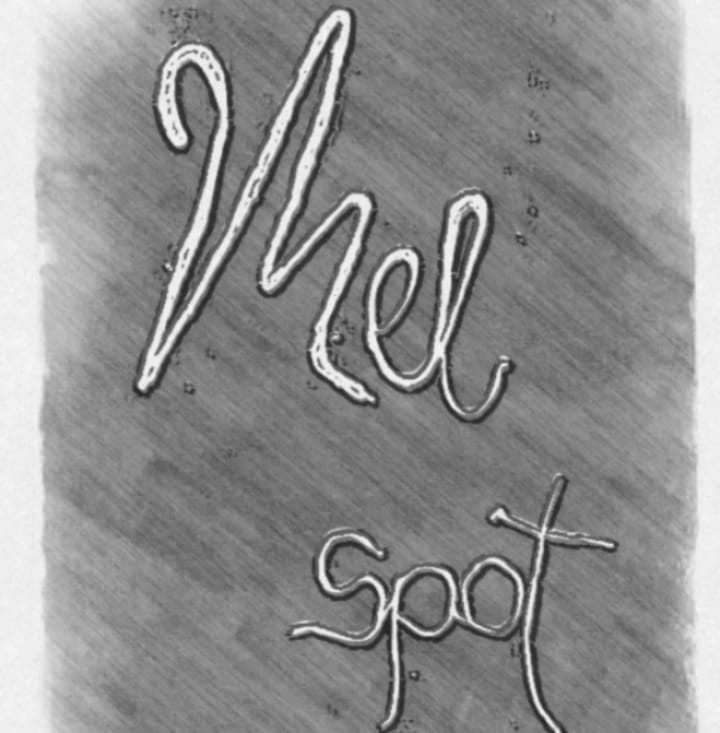 Mel
spot